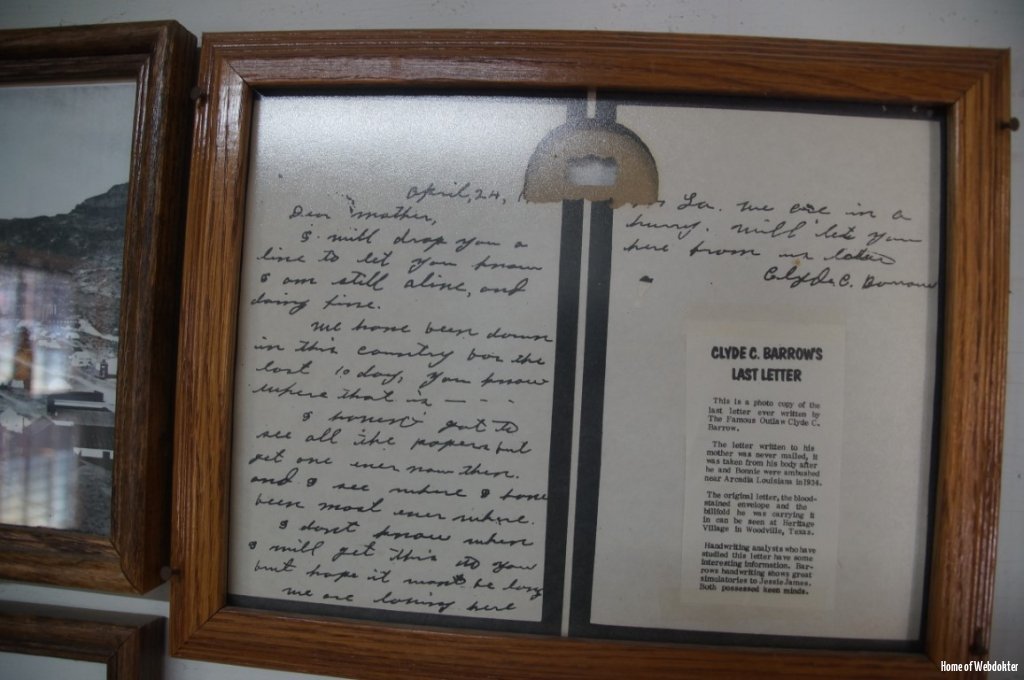 April, 24,
Dear mother,
I will drop you a
line to let you know
I am still alive, and
doing fine.
We have been down
in this country for the
last 10 day, you know
where that is - - - -
I havent got to
see all the papers but
get one ever now then.
and I see where I have
been most ever where.
I dont know when
I will get this to you
but hope it wont be long
we are here
La. we are in a
hurry. Will let you
here from us later
Clyde C. Barrow
CLYDE C. BARROW'S
LAST LETTER
This is a photo copy of the
last letter ever written by
The Famous Outlaw Clyde C.
Barrow.
The letter written to his
mother was never mailed, it
was taken from his body after
he and Bonnie were ambushed
near Arcadia Louisiana in 1934.
The original letter, the blood-
stained envelope and the
billfold he was carrying it
in can be seen at Heritage
Village in Woodville, Texas.
Handwriting analysts who have
studied this letter have some
interesting information. Bar-
rows handwriting shows great
simulatories to Jessie James.
Both possessed keen minds.
Home of Webdokter